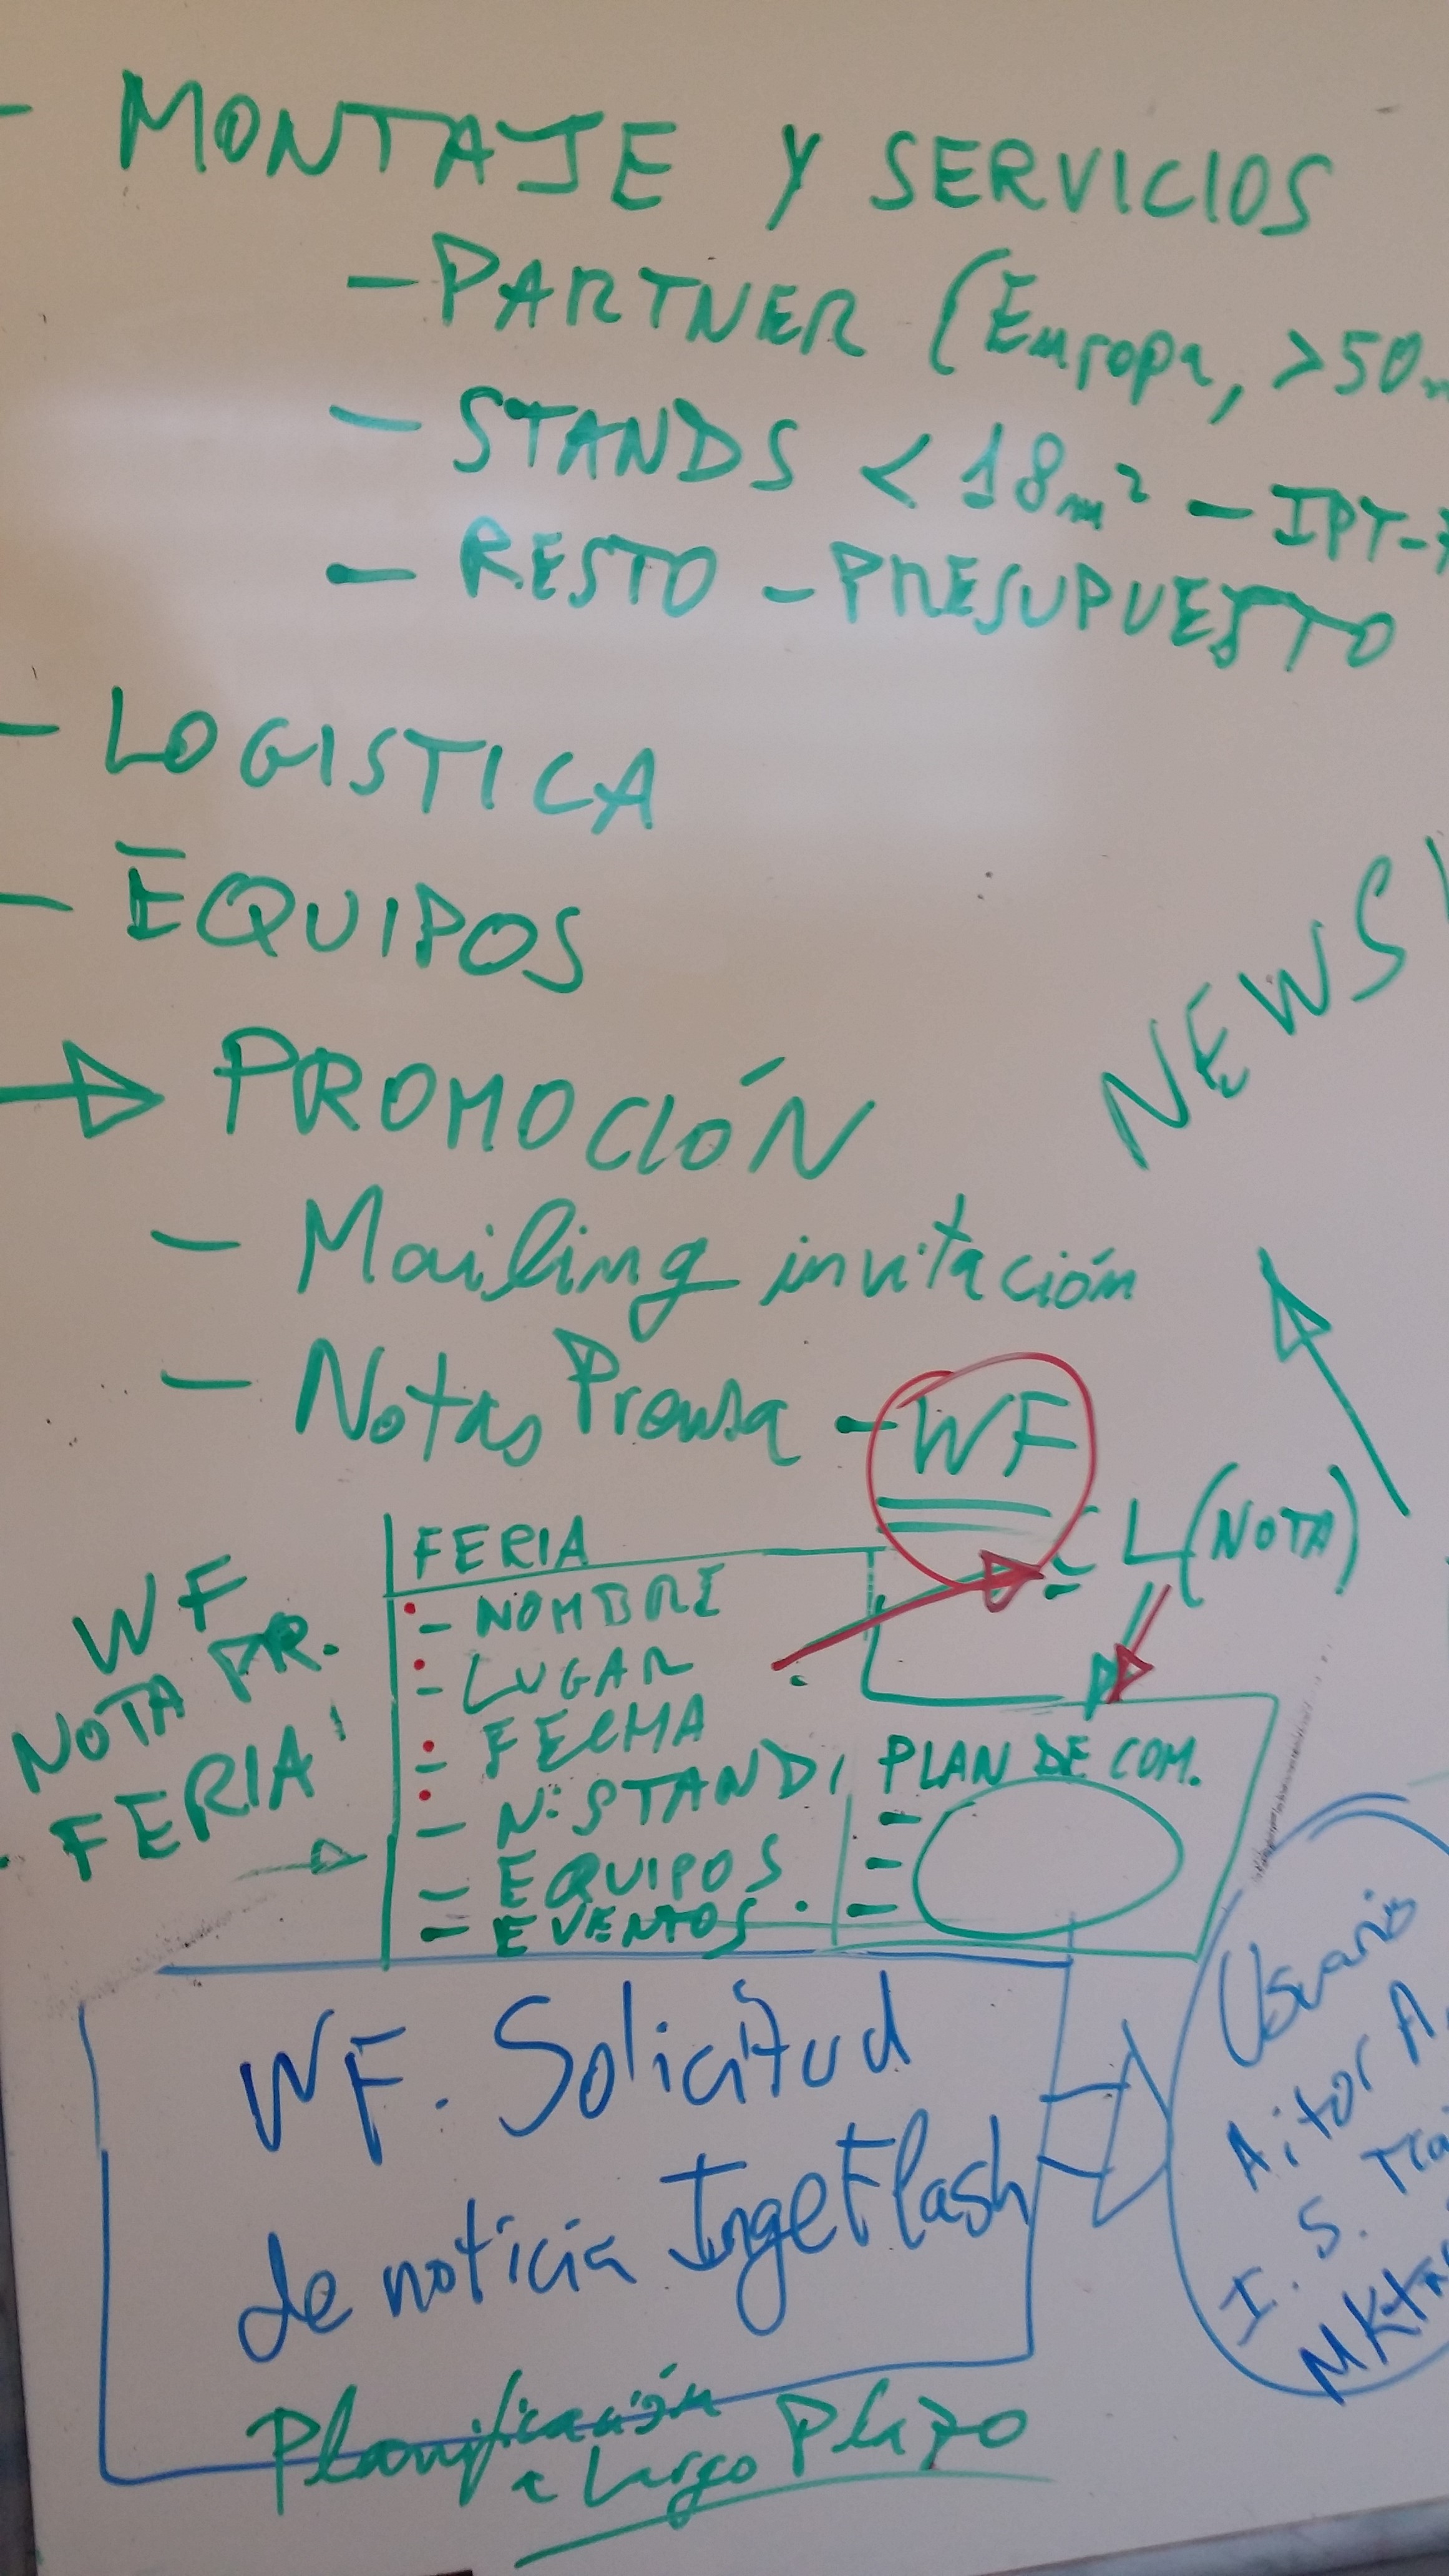 - MONTAJE Y SERVICIOS
- PARTNER (Europa, >50
- STANDS < 18m² - IPT-
- RESTO - PRESUPUESTO
- LOGISTICA
- EQUIPOS
PROMOCIÓN
NEWS
- Mailing invitación
- Notas Prensa - WF
L (NOTA)
WF
NOTA PR.
FERIA
FERIA
- NOMBRE
- LUGAR
- FECHA
- Nº STAND
- EQUIPOS
- EVENTOS
PLAN DE COM.
WF. Solicitud
de noticia IngeFlash
Usuario
Aitor A.
I. S.
Planificación
a Largo Plazo